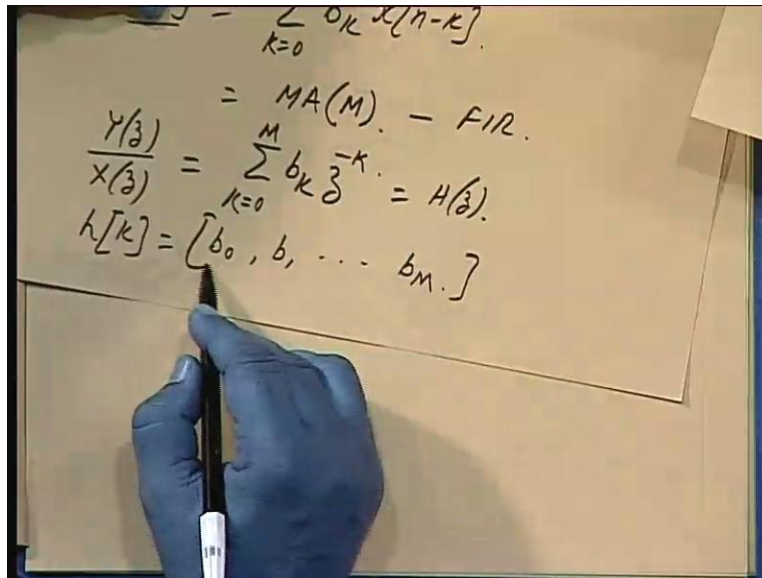 = ∑ b_K x[n-K].
K=0
= MA(M). - FIR.
Y(z)/X(z) = ∑_{K=0}^{M} b_K z^{-K}. = H(z).
h[K] = [b_0, b, ... b_M.]